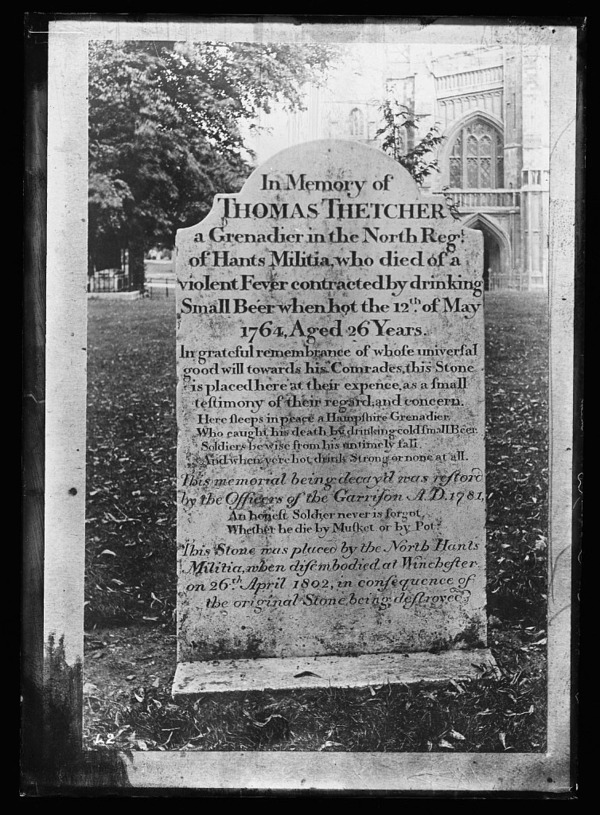 In Memory of
THOMAS THETCHER
a Grenadier in the North Reg.t
of Hants Militia, who died of a
violent Fever contracted by drinking
Small Beer when hot the 12th. of May
1764, Aged 26 Years.
In grateful remembrance of whoſe univerſal
good will towards his Comrades, this Stone
is placed here at their expence, as a ſmall
teſtimony of their regard, and concern.
Here ſleeps in peace a Hampſhire Grenadier,
Who caught his death by drinking cold ſmall Beer.
Soldiers be wiſe from his untimely fall
And when ye're hot drink Strong or none at all.
This memorial being decay'd was reſtor'd
by the Officers of the Garriſon A.D. 1781,
An honeſt Soldier never is forgot,
Whether he die by Muſket or by Pot.
This Stone was placed by the North Hants
Militia, when diſembodied at Wincheſter
on 26th. April 1802, in conſequence of
the original Stone being deſtroyed